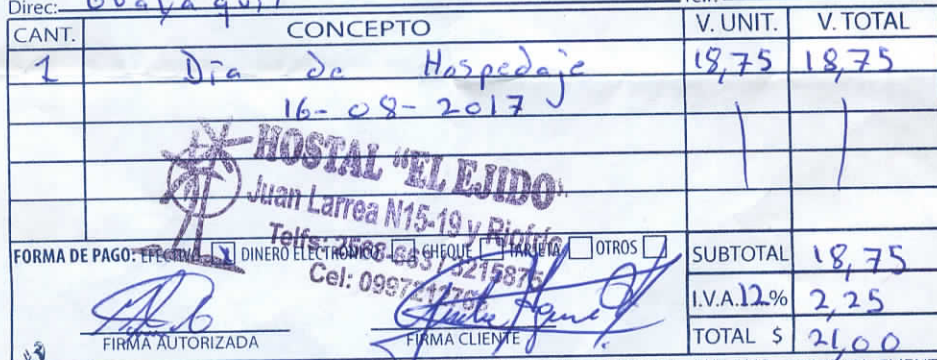 Direc: Guayaquil
CANT. CONCEPTO V. UNIT. V. TOTAL
1 Día de Hospedaje 18,75 18,75
16-08-2017
HOSTAL "EL EJIDO"
Juan Larrea N15-19 y Riofrío
Telfs: 2568-663 / 3215875
Cel:
FORMA DE PAGO: EFECTIVO X DINERO ELECTRÓNICO CHEQUE TARJETA OTROS
SUBTOTAL 18,75
I.V.A. 12% 2,25
TOTAL $ 21,00
FIRMA AUTORIZADA FIRMA CLIENTE